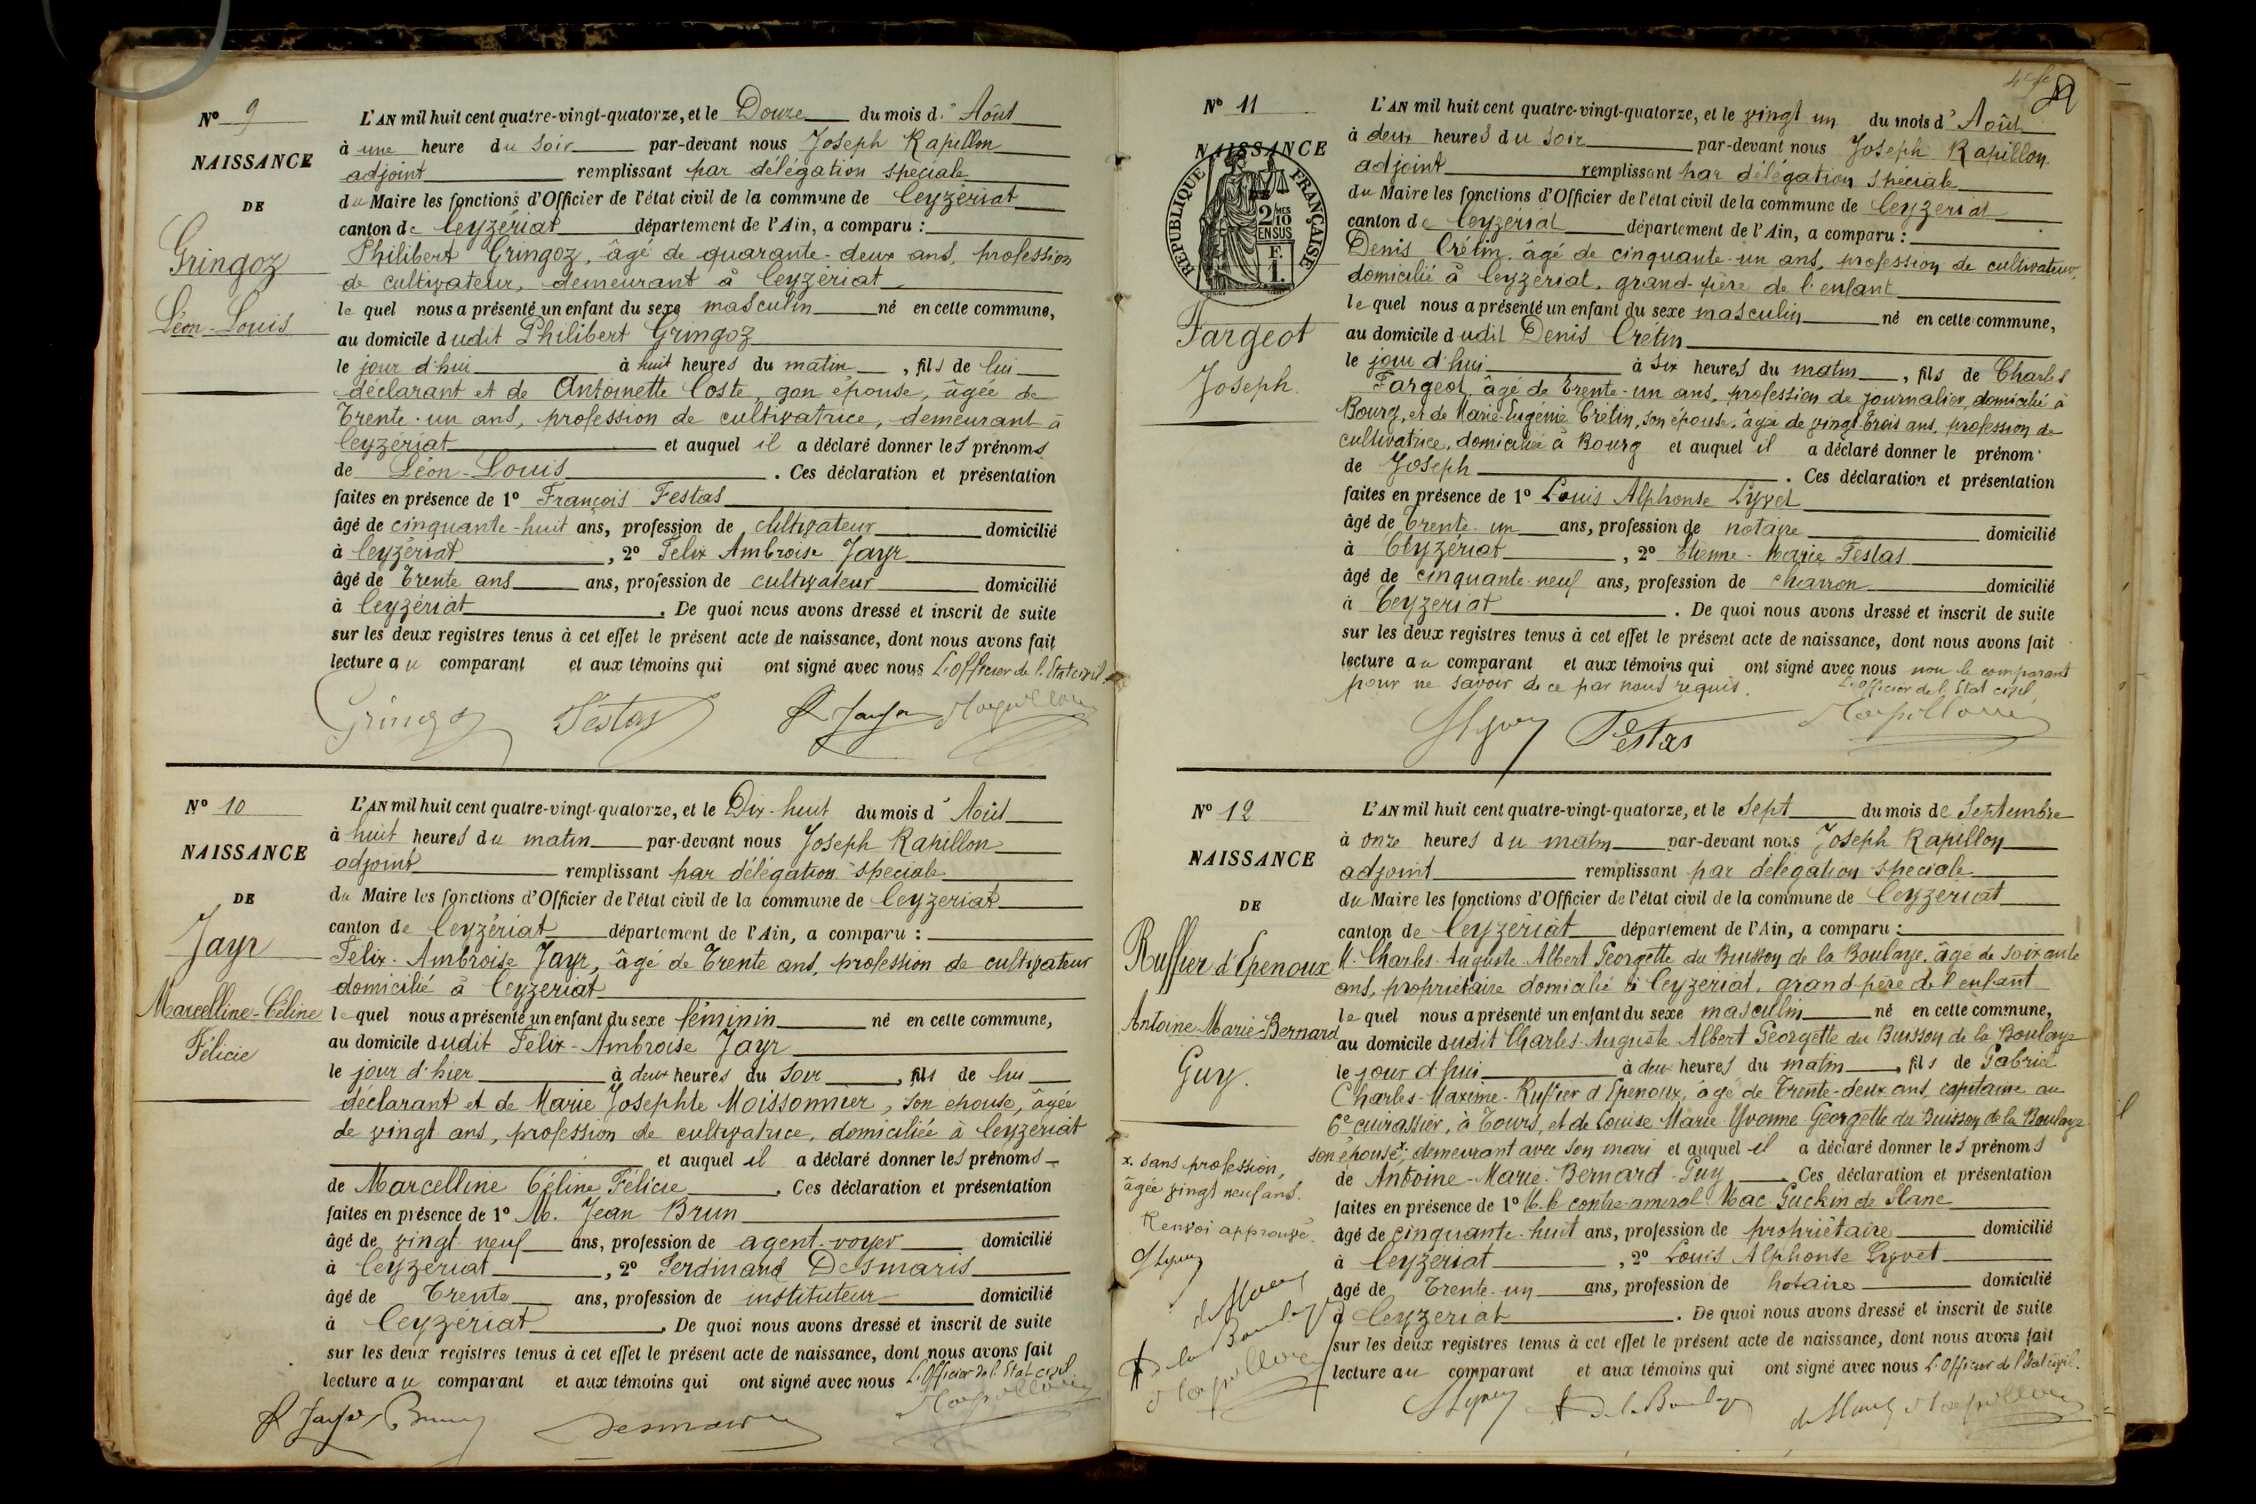 N° 9
NAISSANCE
DE
Gringoz
Léon-Louis
L'AN mil huit cent quatre-vingt-quatorze, et le Douze du mois d' Août
à une heure du soir par-devant nous Joseph Rapillon
adjoint remplissant par délégation spéciale
du Maire les fonctions d'Officier de l'état civil de la commune de Ceyzériat
canton de Ceyzériat département de l'Ain, a comparu :
Philibert Gringoz, âgé de quarante-deux ans, profession
de cultivateur, demeurant à Ceyzériat
le quel nous a présenté un enfant du sexe masculin né en cette commune,
au domicile dudit Philibert Gringoz
le jour d'hui à huit heures du matin, fils de lui
déclarant et de Antoinette Coste, son épouse, âgée de
trente-un ans, profession de cultivatrice, demeurant à
Ceyzériat et auquel il a déclaré donner les prénoms
de Léon-Louis. Ces déclaration et présentation
faites en présence de 1° François Festas
âgé de cinquante-huit ans, profession de cultivateur domicilié
à Ceyzériat, 2° Felix Ambroise Jayr
âgé de trente ans ans, profession de cultivateur domicilié
à Ceyzériat. De quoi nous avons dressé et inscrit de suite
sur les deux registres tenus à cet effet le présent acte de naissance, dont nous avons fait
lecture au comparant et aux témoins qui ont signé avec nous L'Officier de l'Etat civil.
Gringoz Festas F Jayr Rapillon
N° 10
NAISSANCE
DE
Jayr
Marcelline-Céline
Félicie
L'AN mil huit cent quatre-vingt-quatorze, et le Dix-huit du mois d' Août
à huit heures du matin par-devant nous Joseph Rapillon
adjoint remplissant par délégation spéciale
du Maire les fonctions d'Officier de l'état civil de la commune de Ceyzériat
canton de Ceyzériat département de l'Ain, a comparu :
Felix-Ambroise Jayr, âgé de trente ans, profession de cultivateur
domicilié à Ceyzériat
le quel nous a présenté un enfant du sexe féminin né en cette commune,
au domicile dudit Felix-Ambroise Jayr
le jour d'hier à deux heures du soir, fils de lui
déclarant et de Marie Josephte Moissonnier, son épouse, âgée
de vingt ans, profession de cultivatrice, domiciliée à Ceyzériat
et auquel il a déclaré donner les prénoms
de Marcelline Céline Félicie. Ces déclaration et présentation
faites en présence de 1° M. Jean Brun
âgé de vingt-neuf ans, profession de agent-voyer domicilié
à Ceyzériat, 2° Ferdinand Desmaris
âgé de trente ans, profession de instituteur domicilié
à Ceyzériat. De quoi nous avons dressé et inscrit de suite
sur les deux registres tenus à cet effet le présent acte de naissance, dont nous avons fait
lecture au comparant et aux témoins qui ont signé avec nous L'Officier de l'Etat civil
F Jayr Brun Desmaris Rapillon
N° 11
NAISSANCE
RÉPUBLIQUE FRANÇAISE
2/10 MES
EN SUS
F.
1.
Fargeot
Joseph.
L'AN mil huit cent quatre-vingt-quatorze, et le vingt un du mois d' Août
à deux heures du soir par-devant nous Joseph Rapillon
adjoint remplissant par délégation spéciale
du Maire les fonctions d'Officier de l'état civil de la commune de Ceyzériat
canton de Ceyzériat département de l'Ain, a comparu :
Denis Crétin, âgé de cinquante-un ans, profession de cultivateur,
domicilié à Ceyzériat, grand-père de l'enfant
le quel nous a présenté un enfant du sexe masculin né en cette commune,
au domicile dudit Denis Crétin
le jour d'hui à six heures du matin, fils de Charles
Fargeot, âgé de trente-un ans, profession de journalier, domicilié à
Bourg, et de Marie-Eugénie Cretin, son épouse, âgée de vingt-trois ans, profession de
cultivatrice, domiciliée à Bourg et auquel il a déclaré donner le prénom
de Joseph. Ces déclaration et présentation
faites en présence de 1° Louis Alphonse Lyvet
âgé de trente-un ans, profession de notaire domicilié
à Ceyzériat, 2° Etienne-Marie Festas
âgé de cinquante-neuf ans, profession de charron domicilié
à Ceyzeriat. De quoi nous avons dressé et inscrit de suite
sur les deux registres tenus à cet effet le présent acte de naissance, dont nous avons fait
lecture au comparant et aux témoins qui ont signé avec nous non le comparant
pour ne savoir de ce par nous requis. L'Officier de l'Etat civil,
Lyvet Festas Rapillon
N° 12
NAISSANCE
DE
Ruffier d'Epenoux
Antoine-Marie-Bernard
Guy.
L'AN mil huit cent quatre-vingt-quatorze, et le sept du mois de Septembre
à onze heures du matin par-devant nous Joseph Rapillon
adjoint remplissant par délégation spéciale
du Maire les fonctions d'Officier de l'état civil de la commune de Ceyzériat
canton de Ceyzériat département de l'Ain, a comparu :
M. Charles-Auguste Albert Georgette du Buisson de la Boulaye, âgé de soixante
ans, propriétaire domicilié à Ceyzériat, grand-père de l'enfant
le quel nous a présenté un enfant du sexe masculin né en cette commune,
au domicile dudit Charles-Auguste Albert Georgette du Buisson de la Boulaye
le jour d'hui à deux heures du matin, fils de Gabriel
Charles-Maxime-Ruffier d'Epenoux, âgé de trente-deux ans, capitaine au
6e cuirassier, à Tours, et de Louise Marie Yvonne Georgette du Buisson de la Boulaye
son épouse x, demeurant avec son mari et auquel il a déclaré donner les prénoms
de Antoine-Marie-Bernard-Guy. Ces déclaration et présentation
faites en présence de 1° M. le contre-amiral Mac-Guckin de Slane
âgé de cinquante-huit ans, profession de propriétaire domicilié
à Ceyzeriat, 2° Louis Alphonse Lyvet
âgé de trente-un ans, profession de notaire domicilié
à Ceyzériat. De quoi nous avons dressé et inscrit de suite
sur les deux registres tenus à cet effet le présent acte de naissance, dont nous avons fait
lecture au comparant et aux témoins qui ont signé avec nous L'Officier de l'Etat civil.
x. sans profession,
âgée vingt neuf ans.
Renvoi approuvé.
Lyvet
de Slane
de la Boulaye
Rapillon
Lyvet de la Boulaye de Slane Rapillon